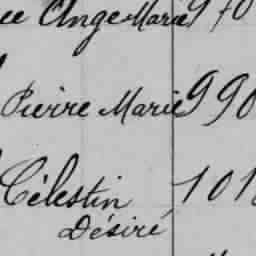 ee Ange Marie 970
Pierre Marie 990
Célestin 101
Désiré